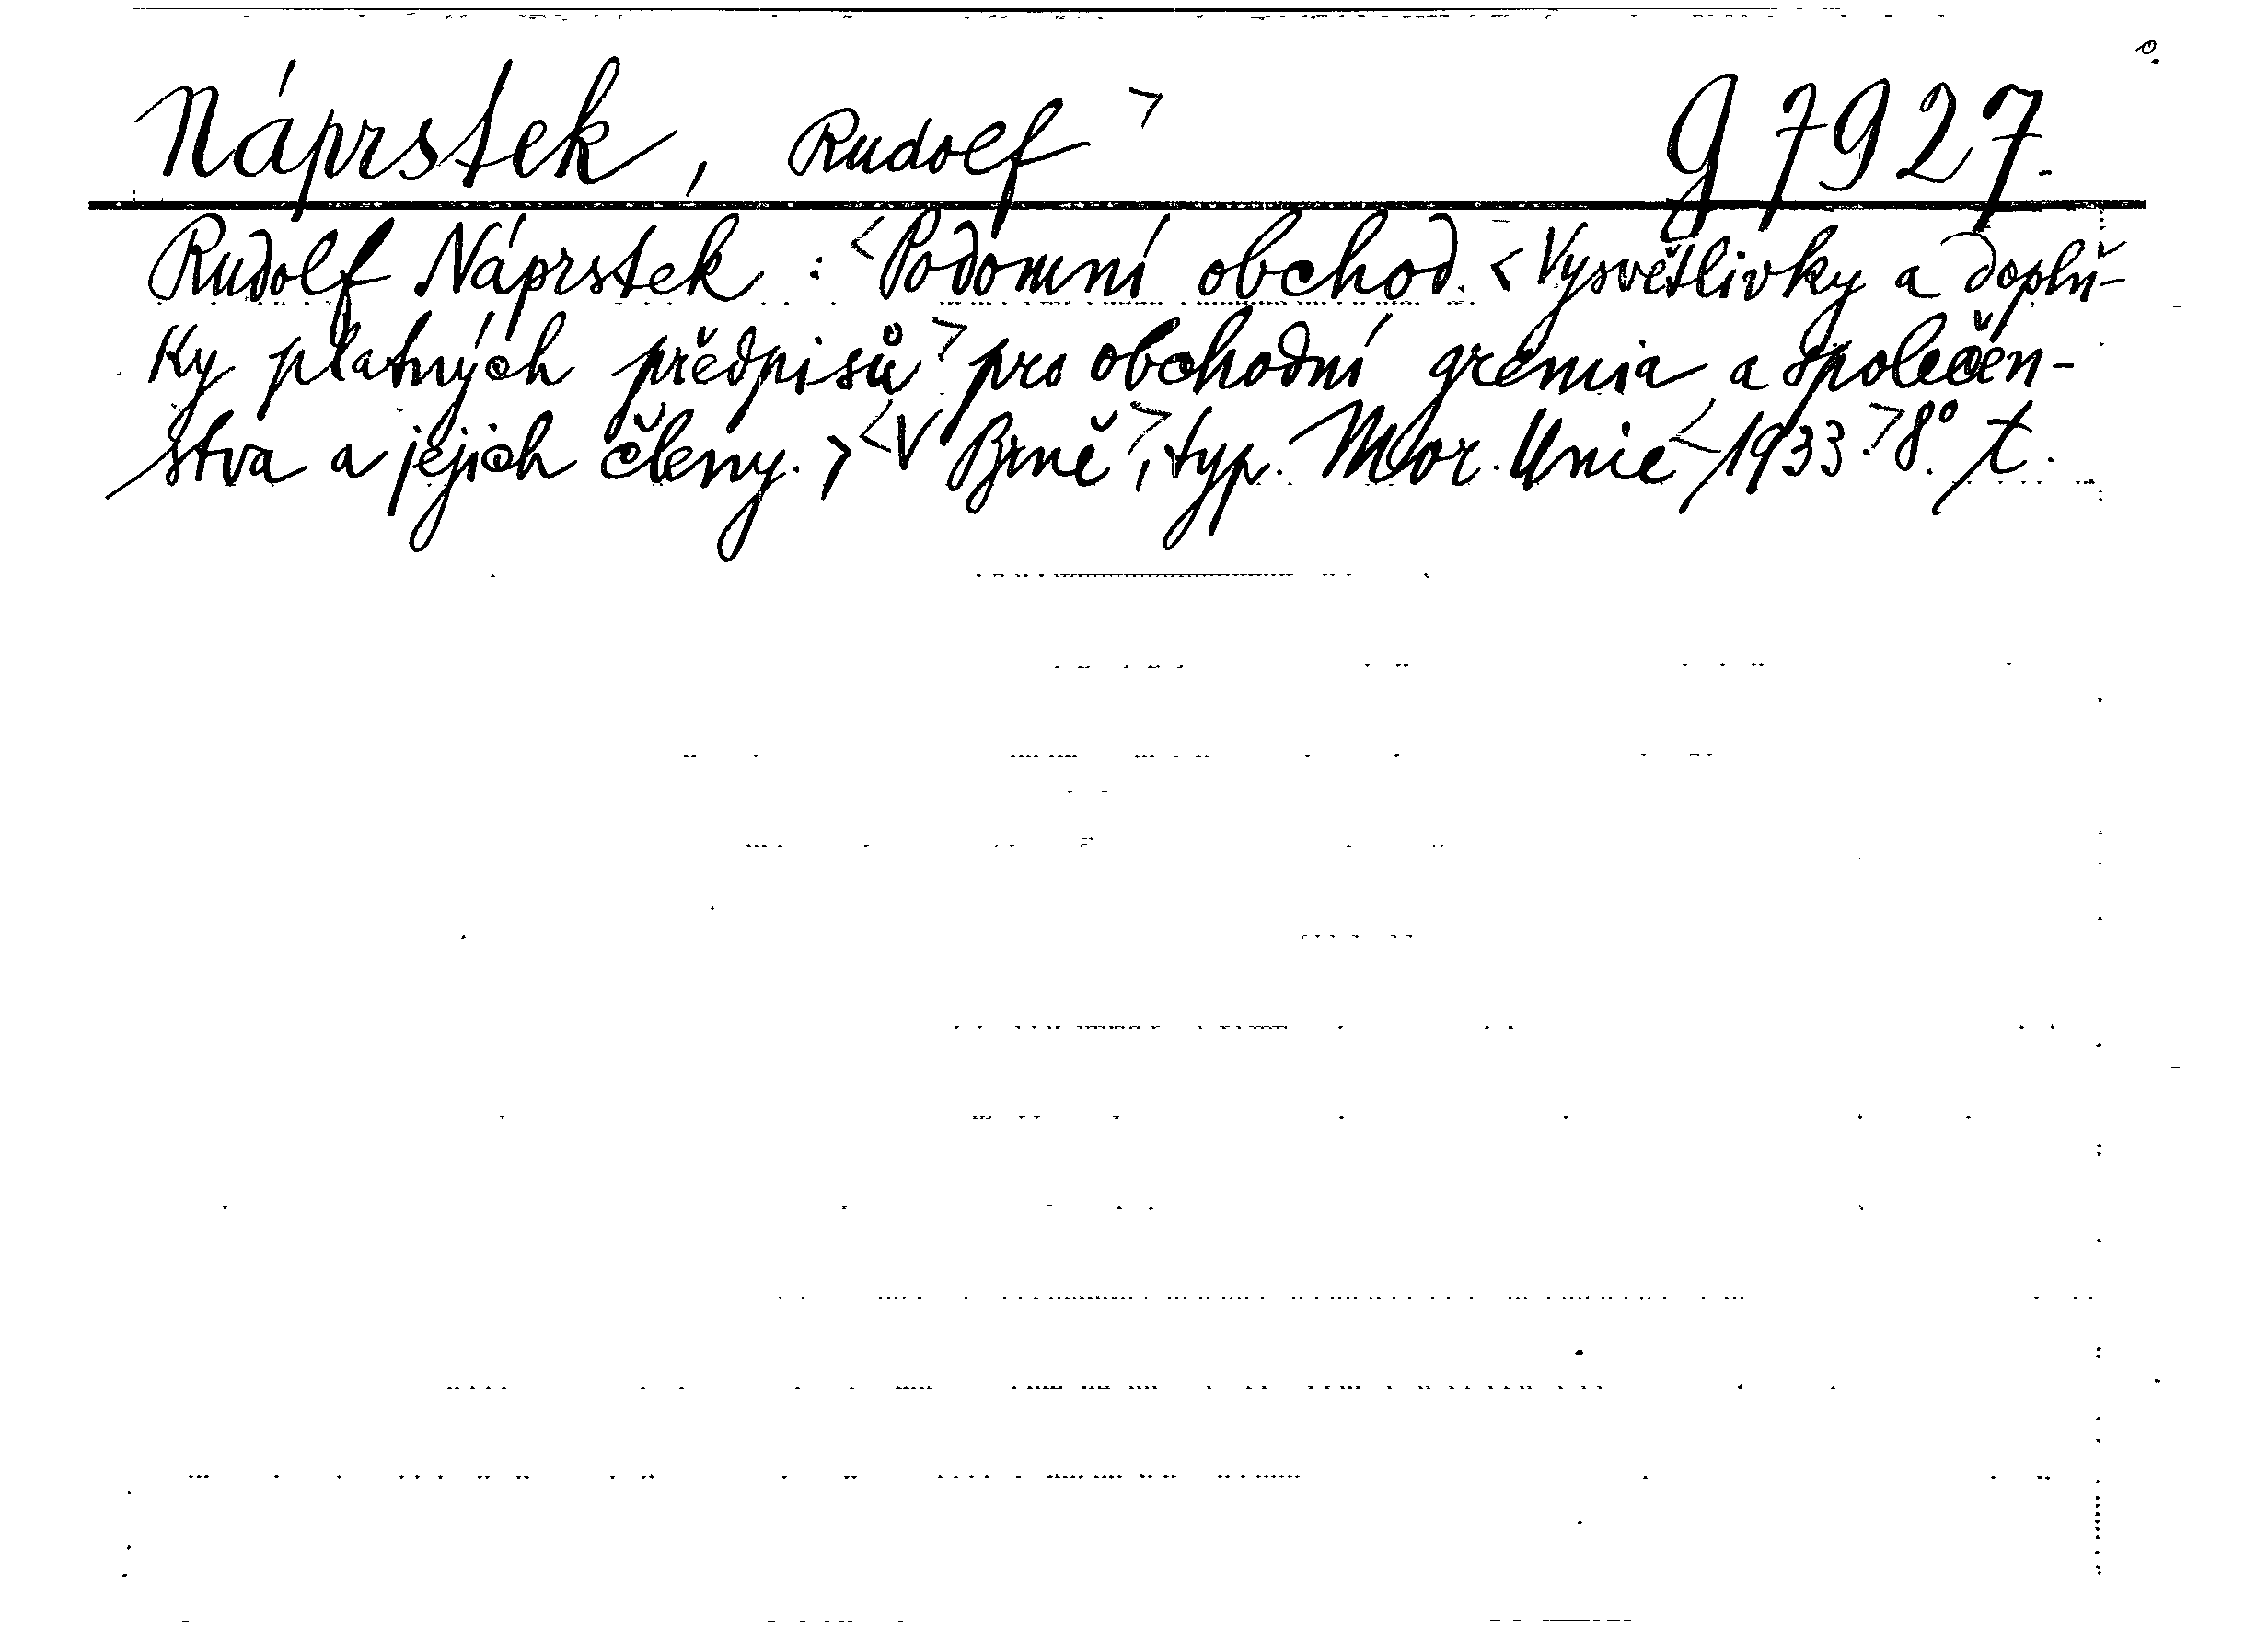 Náprstek, Rudolf> g 7927.
Rudolf Náprstek : <Podomní obchod. <Vysvětlivky a doplň-
ky platných předpisů> pro obchodní gremia a společen-
stva a jejich členy. > <V Brně>, typ. Mor. Unie <1933.> 8°. t.